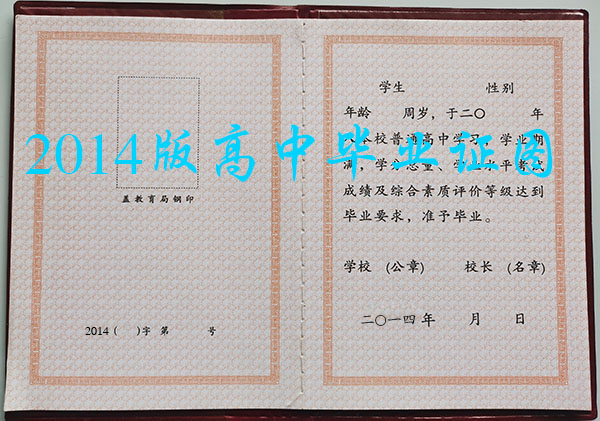 2014版高中毕业证图
盖教育局钢印
2014 ( )字 第 号
学生 性别
年龄 周岁，于二〇 年
本校普通高中学习，学业期
满，学分总量、学业水平考试
成绩及综合素质评价等级达到
毕业要求，准予毕业。
学校 (公章) 校长 (名章)
二〇一四年 月 日